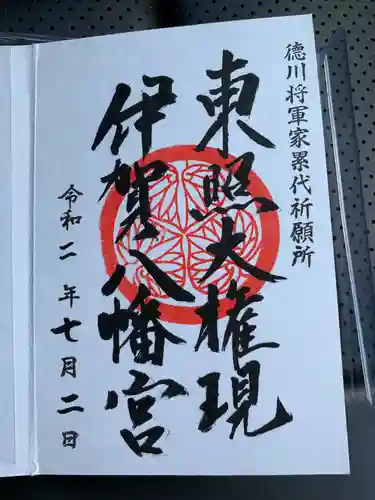 德川将軍家累代祈願所
東照大権現
伊賀八幡宮
令和二年七月二日